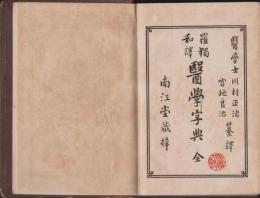 醫學士 川村正治
宮地良治
纂譯
羅獨
和譯
醫學字典 全
南江堂藏梓